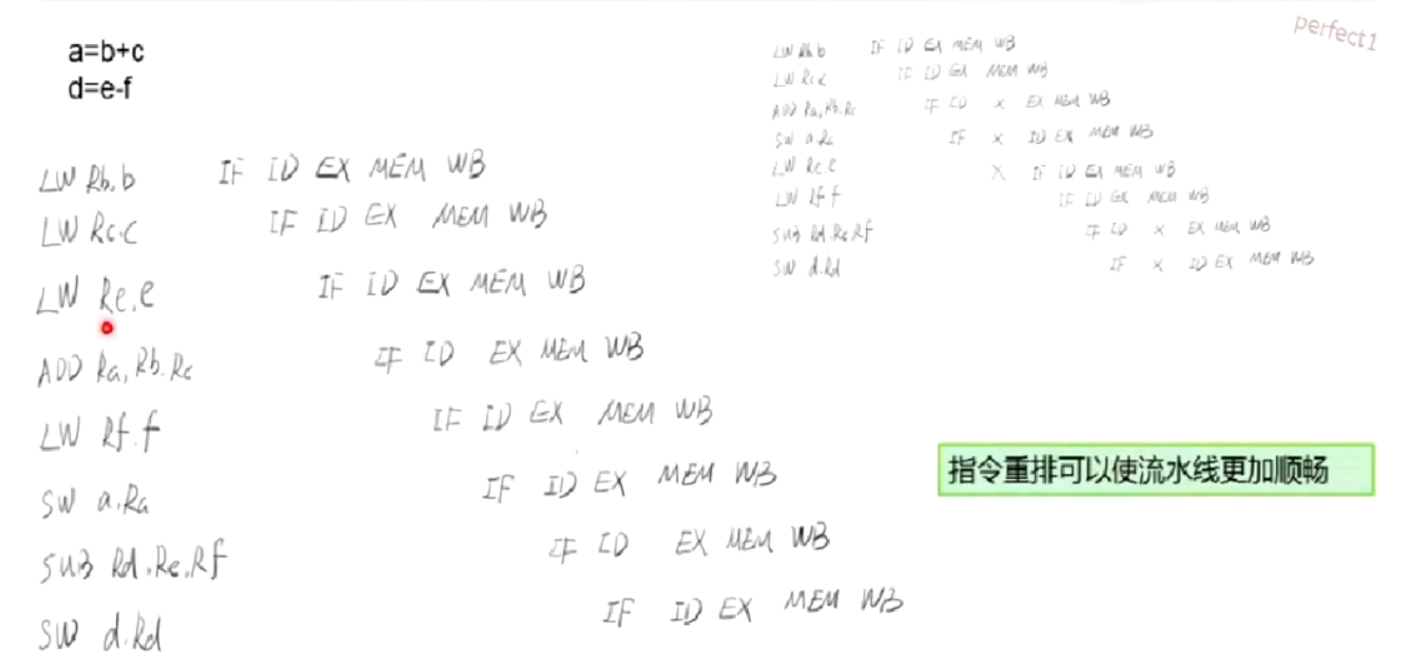 a=b+c
d=e-f
LW Rb.b IF ID EX MEM WB
LW Rc.c IF ID EX MEM WB
LW Re.e IF ID EX MEM WB
ADD Ra, Rb. Rc IF ID EX MEM WB
LW Rf.f IF ID EX MEM WB
SW a.Ra IF ID EX MEM WB
SUB Rd.Re.Rf IF ID EX MEM WB
SW d.Rd IF ID EX MEM WB
perfect1
LW Rb b IF ID EX MEM WB
LW Rc c IF ID EX MEM WB
ADD Ra, Rb. Rc IF ID X EX MEM WB
SW a. IF X ID EX MEM WB
LW Re.e X IF ID EX MEM WB
LW Rf f IF ID EX MEM WB
SUB Rd.Re Rf IF ID X EX MEM WB
SW d.Rd IF X ID EX MEM WB
指令重排可以使流水线更加顺畅